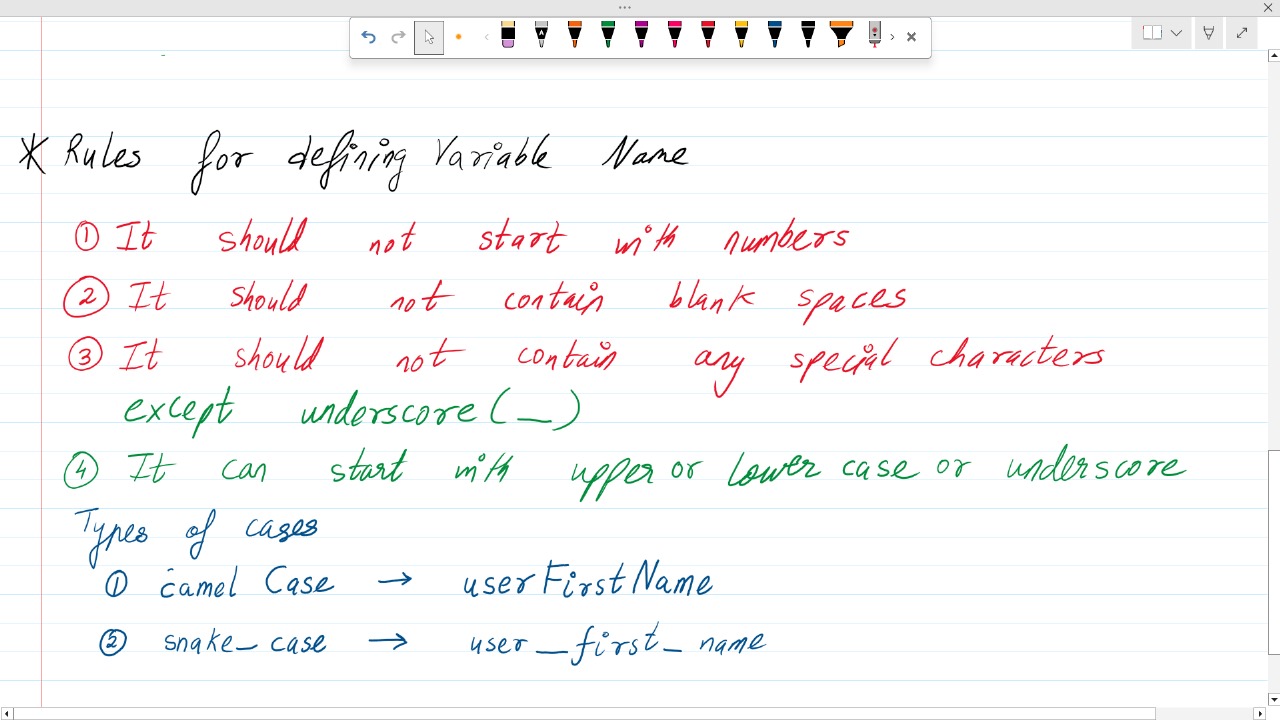 * Rules for defining Variable Name
① It should not start with numbers
② It should not contain blank spaces
③ It should not contain any special characters
except underscore (_)
④ It can start with upper or lower case or underscore
Types of cases
① camel Case → userFirstName
② snake_case → user_first_name